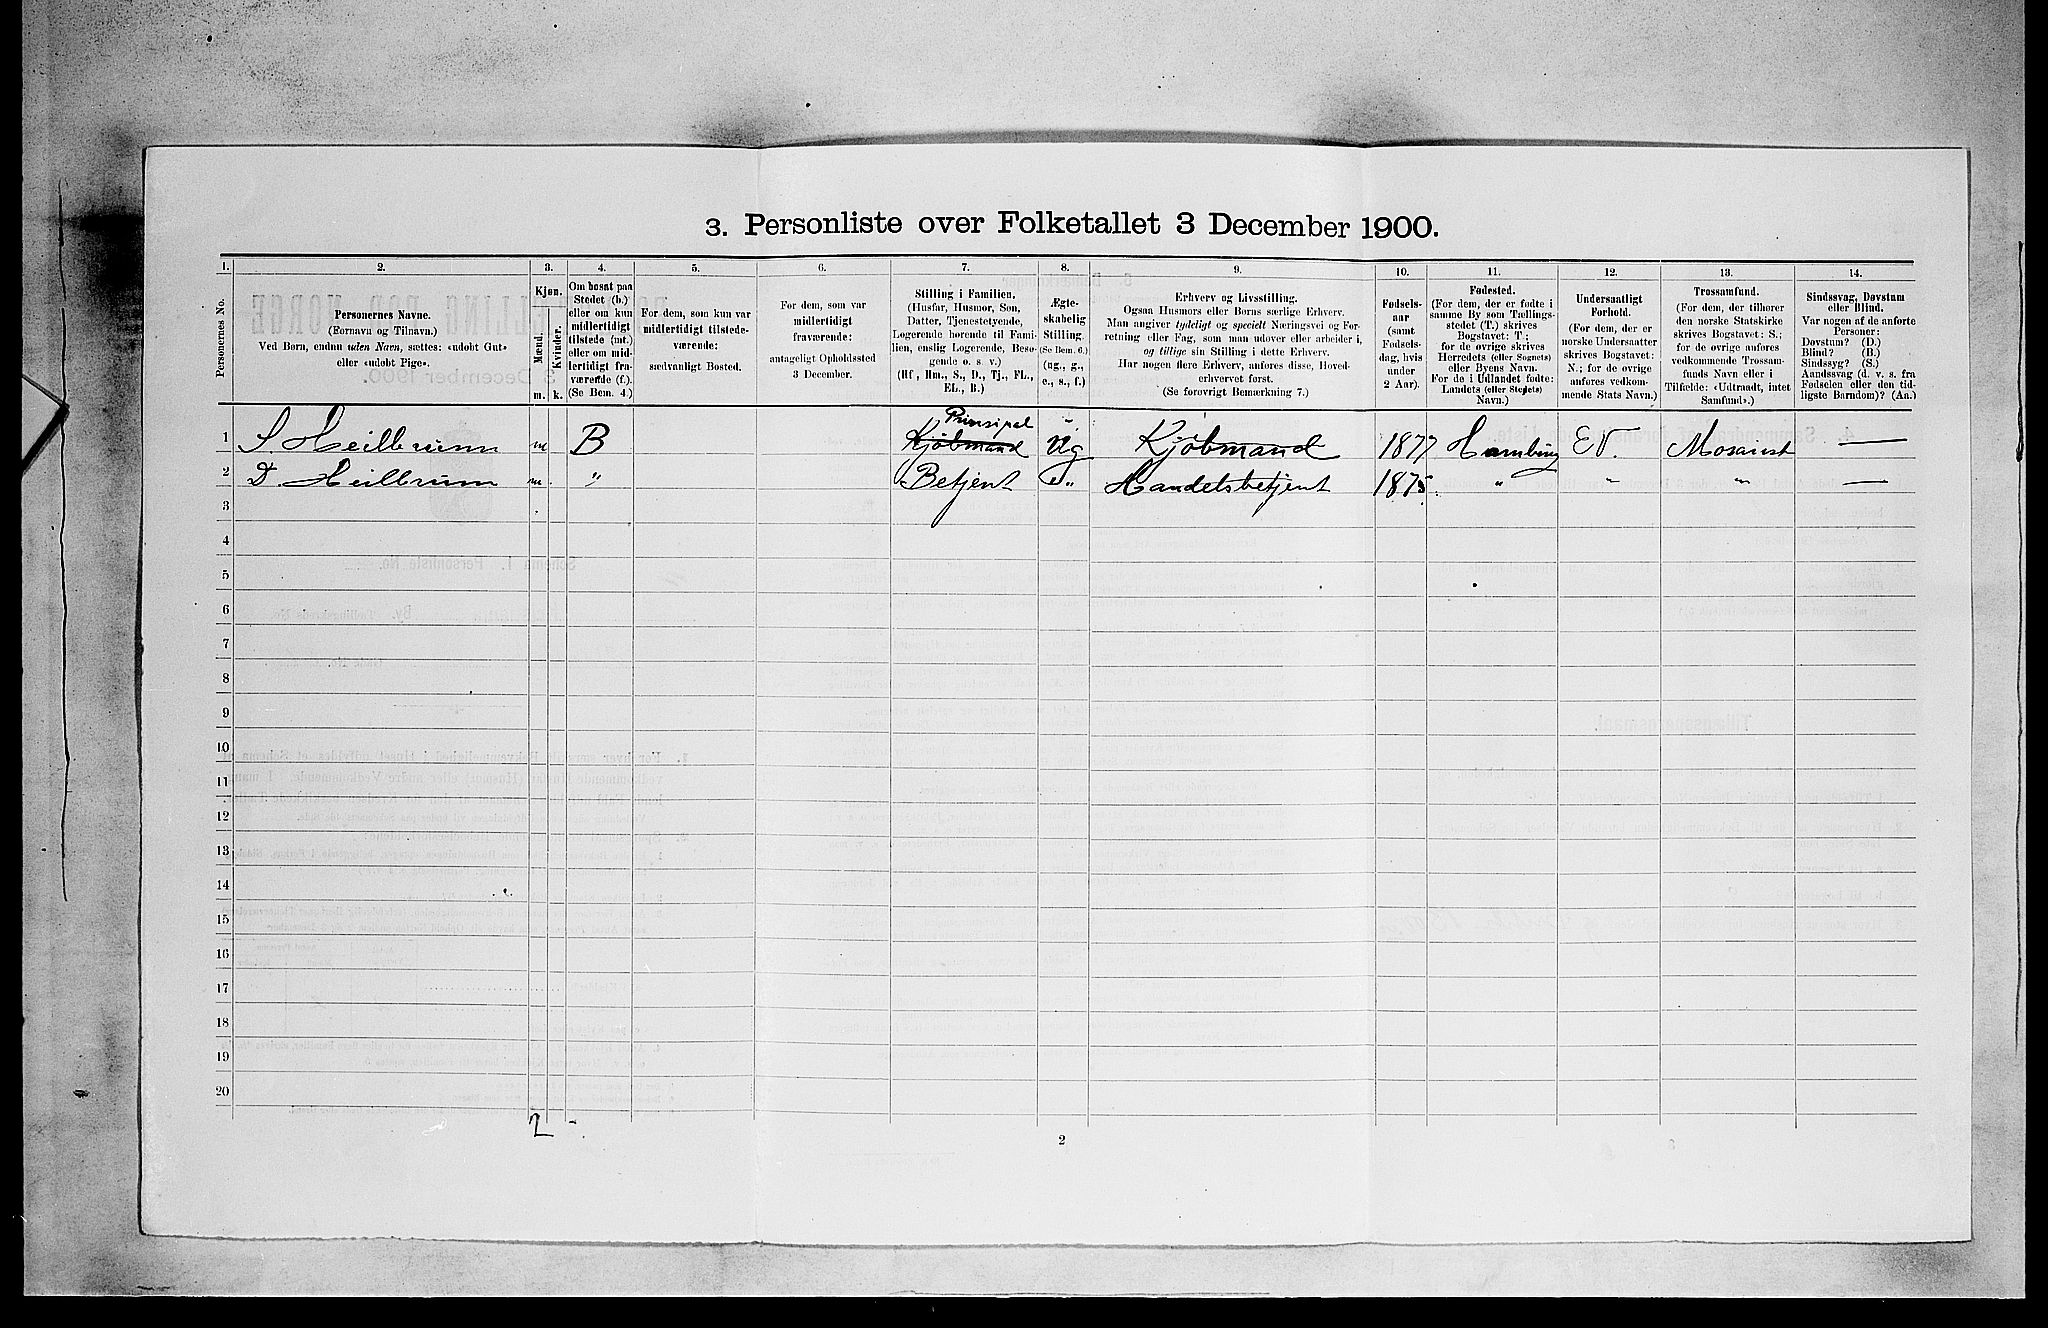 3. Personliste over Folketallet 3 December 1900.
1. 2. 3. 4. 5. 6. 7. 8. 9. 10. 11. 12. 13. 14.
Personernes No.
Personernes Navne.
(Fornavn og Tilnavn.)
Ved Børn, endnu uden Navn, sættes: «udøbt Gut»
eller «udøbt Pige».
Kjøn.
Mænd.
Kvinder.
m. k.
Om bosat paa
Stedet (b.)
eller om kun
midlertidigt
tilstede (mt.)
eller om mid-
lertidigt fra-
værende (f.).
(Se Bem. 4.)
For dem, som kun var
midlertidigt tilstede-
værende:
sædvanligt Bosted.
For dem, som var
midlertidigt
fraværende:
antageligt Opholdssted
3 December.
Stilling i Familien.
(Husfar, Husmor, Søn,
Datter, Tjenestetyende,
Logerende hørende til Fami-
lien, enslig Logerende, Besø-
gende o. s. v.)
(Hf., Hm., S., D., Tj., FL.,
EL., B.)
Ægte-
skabelig
Stilling.
(Se Bem. 6.)
(ug., g.,
e., s., f.)
Erhverv og Livsstilling.
Ogsaa Husmors eller Børns særlige Erhverv.
Man angiver tydeligt og specielt Næringsvei og For-
retning eller Fag, som man udøver eller arbeider i,
og tillige sin Stilling i dette Erhverv.
Har nogen flere Erhverv, anføres disse, Hoved-
erhvervet først.
(Se forøvrigt Bemærkning 7.)
Fødsels-
aar
(samt
Fødsels-
dag, hvis
under
2 Aar).
Fødested.
(For dem, der er fødte i
samme By som Tællings-
stedet (T.) skrives
Bogstavet: T.;
for de øvrige skrives
Herredets (eller Sognets)
eller Byens Navn.
For de i Udlandet fødte:
Landets (eller Stedets)
Navn.)
Undersaatligt
Forhold.
(For dem, der er
norske Undersaatter
skrives Bogstavet:
N.; for de øvrige
anføres vedkom-
mende Stats Navn.)
Trossamfund.
(For dem, der tilhører
den norske Statskirke
skrives Bogstavet: S.;
for de øvrige anføres
vedkommende Trossam-
funds Navn eller i
Tilfælde: «Udtraadt, intet
Samfund».)
Sindssvag, Døvstum
eller Blind.
Var nogen af de anførte
Personer:
Døvstum? (D.)
Blind? (B.)
Sindssyg? (S.)
Aandssvag (d. v. s. fra
Fødselen eller den tid-
ligste Barndom)? (Aa.)
1 S. Heilbrunn m B Kjøbmand Prinsipal ug Kjøbmand 1877 Hamburg N. Mosaist —
2 D. Heilbrunn m. " Betjent " Handelsbetjent 1875. " " " —
3
4
5
6
7
8
9
10
11
12
13
14
15
16
17
18
19
20
2 -
2